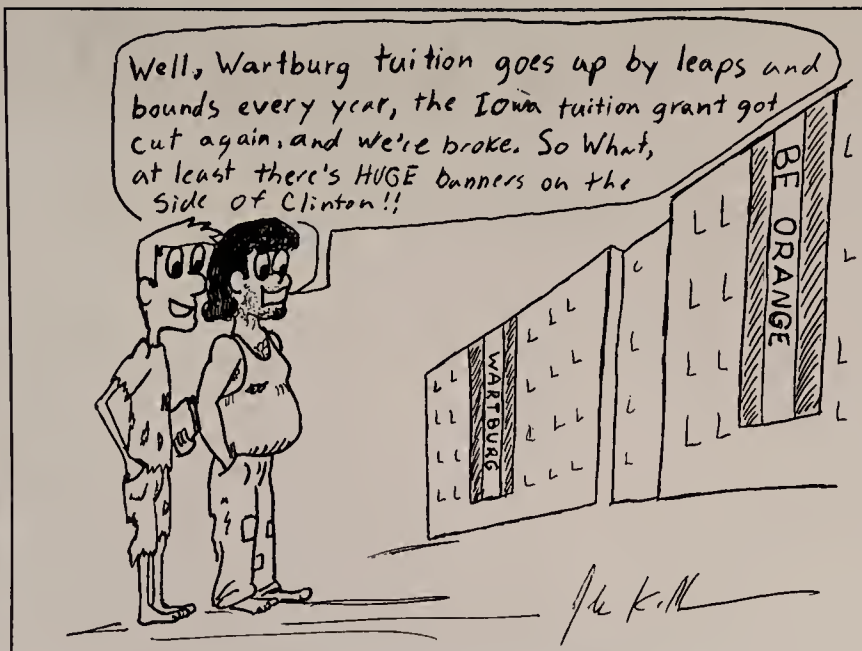 Well, Wartburg tuition goes up by leaps and
bounds every year, the Iowa tuition grant got
cut again, and we're broke. So What,
at least there's HUGE banners on the
side of Clinton!!
BE ORANGE
WARTBURG